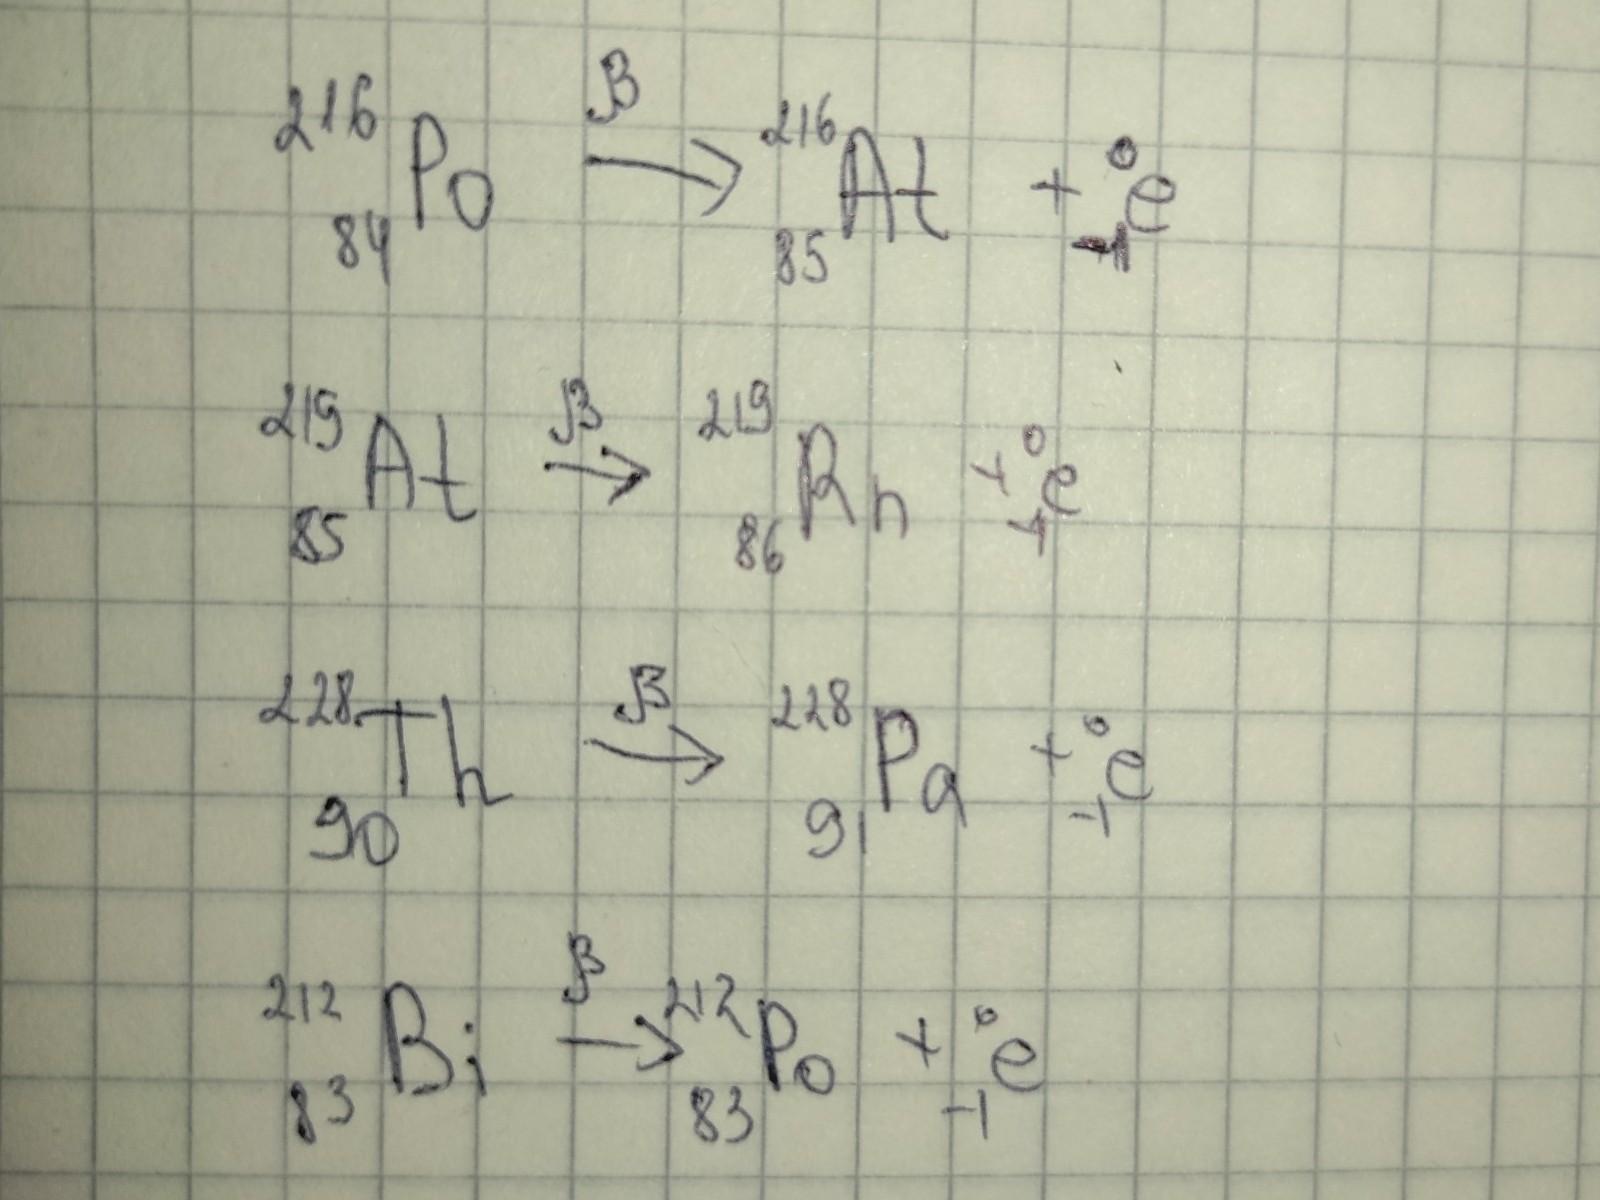 ²¹⁶₈₄Po β→ ²¹⁶₈₅At + ⁰₋₁e
²¹⁹₈₅At β→ ²¹⁹₈₆Rn + ⁰₋₁e
²²⁸₉₀Th β→ ²²⁸₉₁Pa + ⁰₋₁e
²¹²₈₃Bi β→ ²¹²₈₃Po + ⁰₋₁e